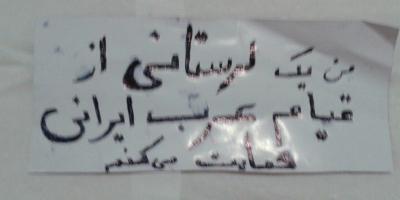 من یک لرستانی از
قیام عرب ایرانی
حمایت می‌کنم